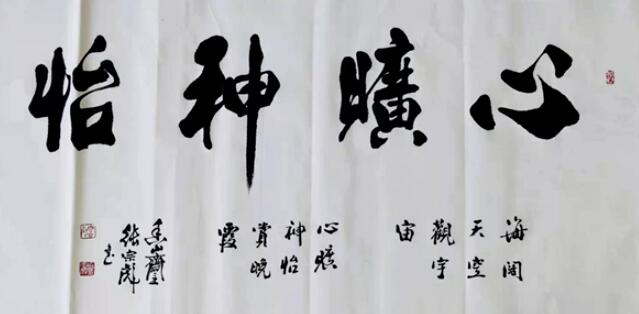 心曠神怡
海闊
天空
觀宇
宙
心曠
神怡
賞晚
霞
張宗彪
书